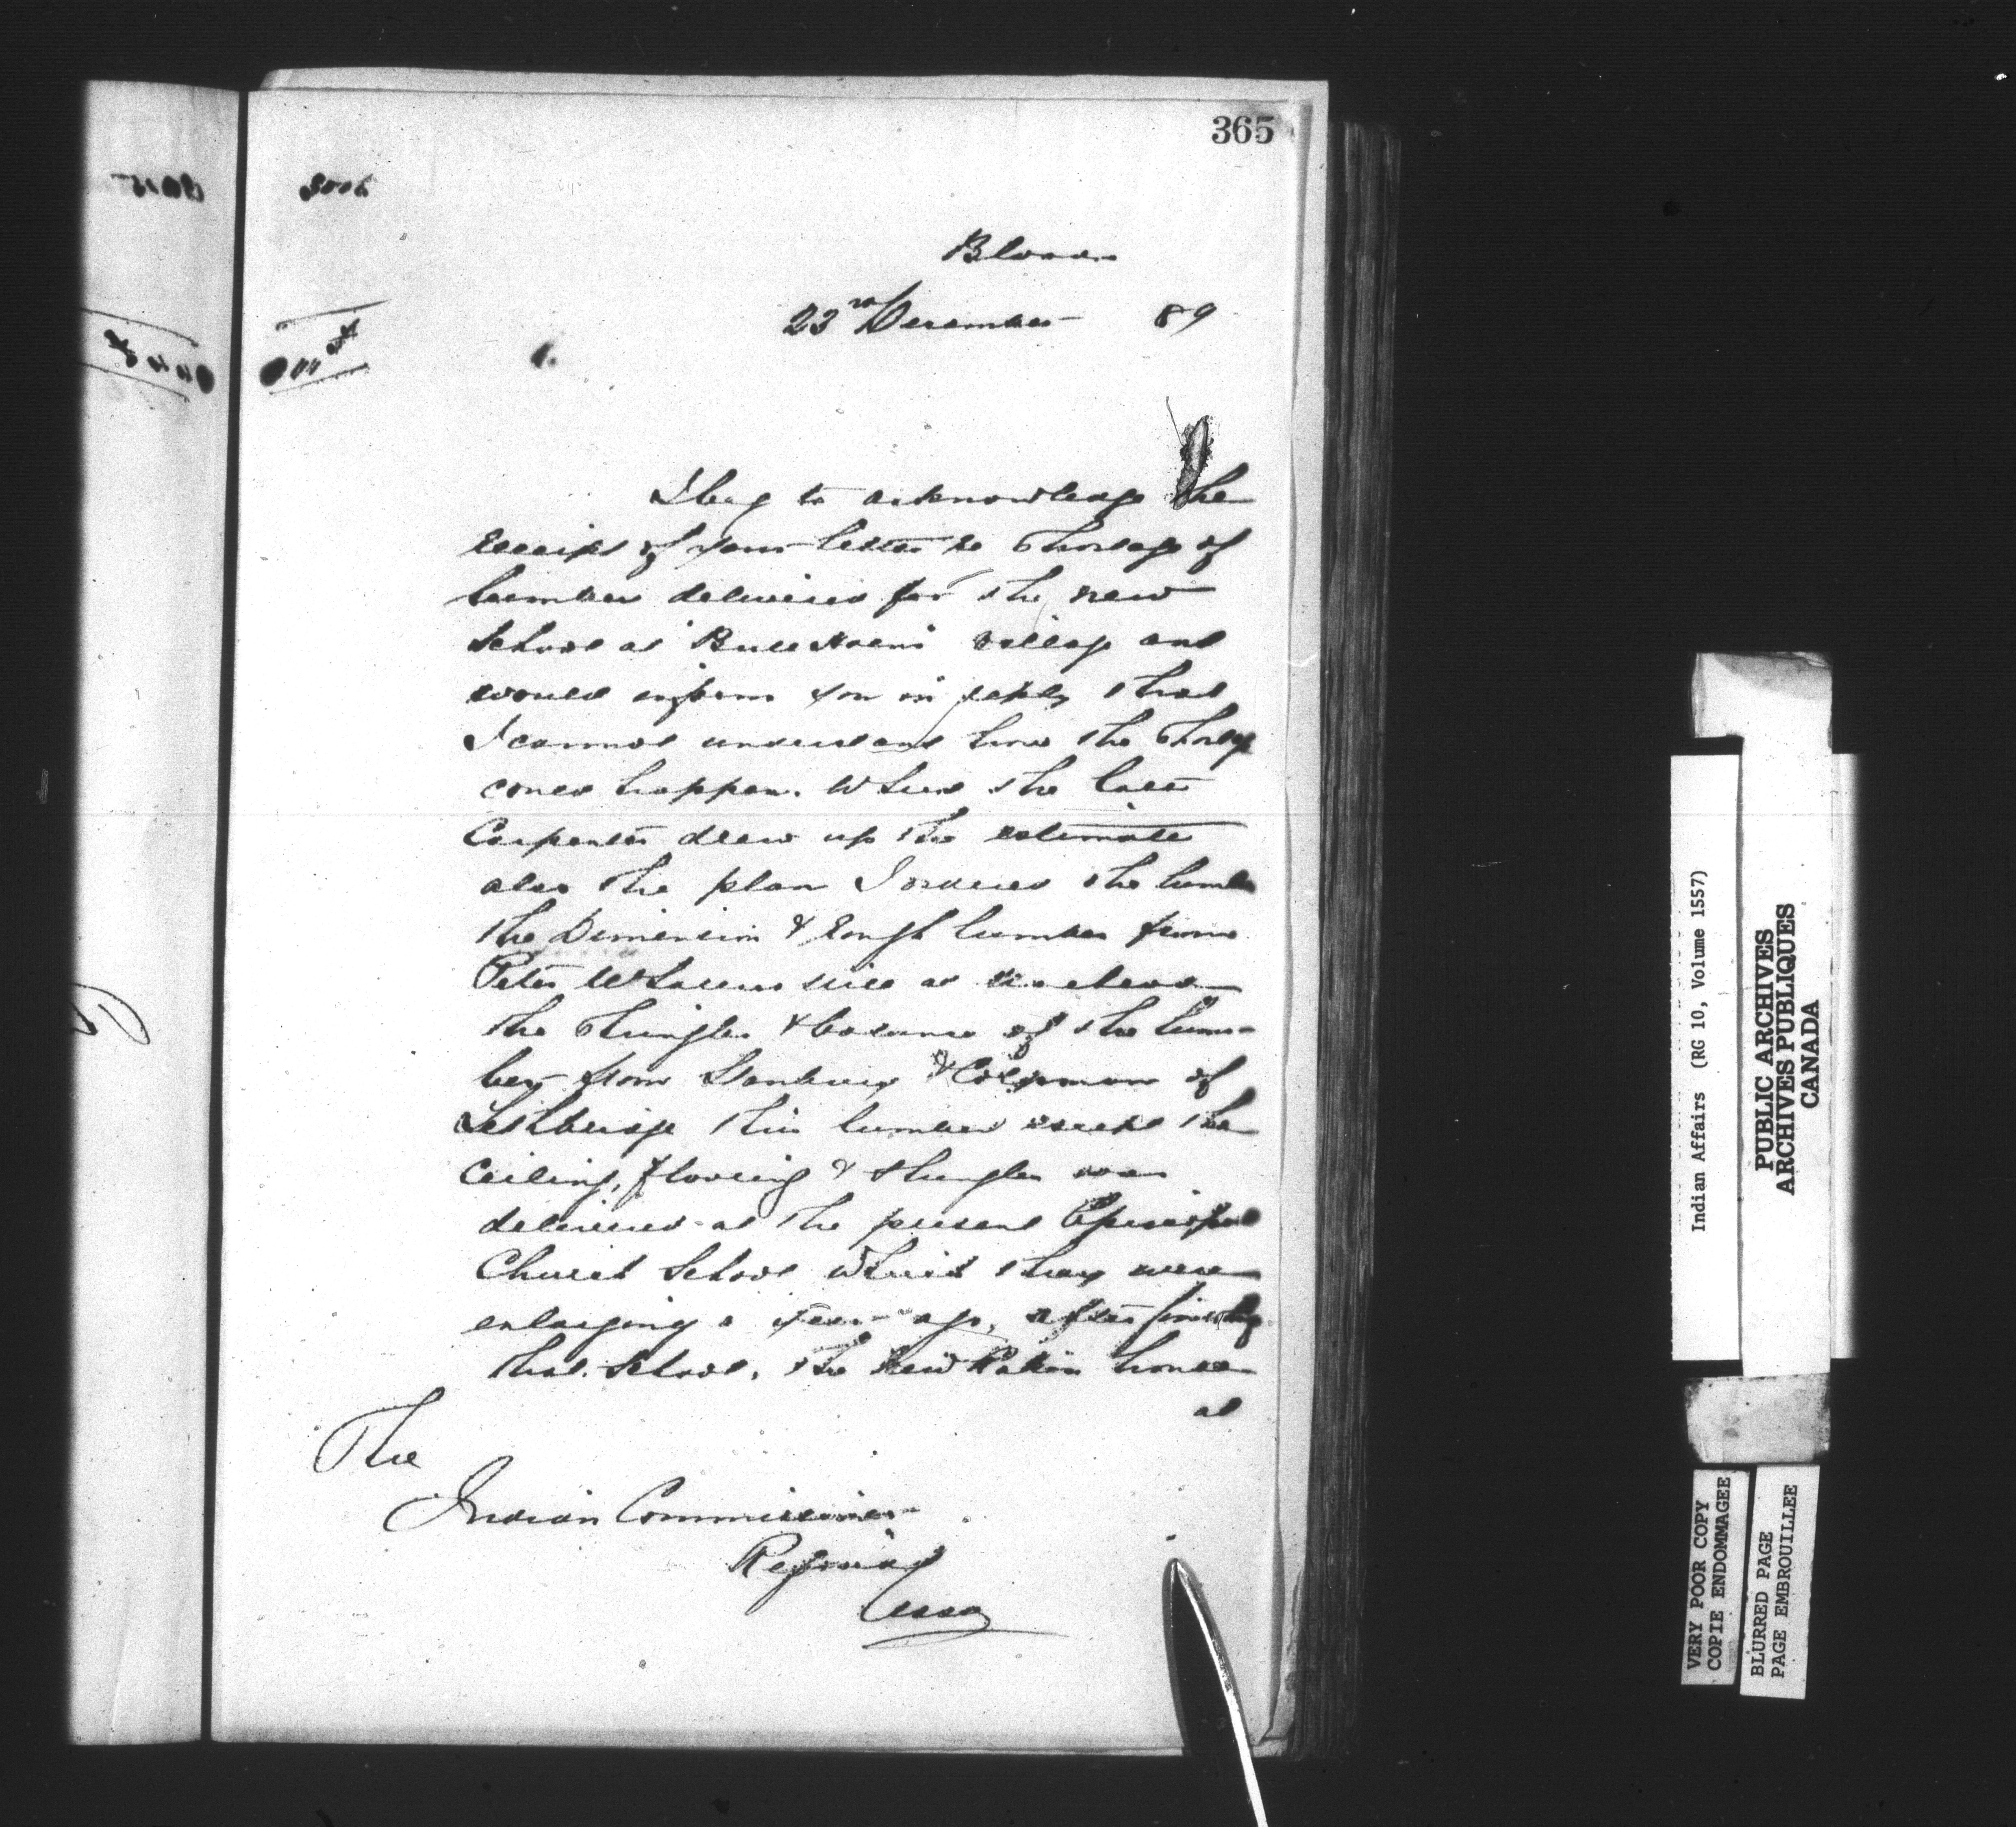 365
Bloods
23rd December 89
I beg to acknowledge the
receipt of your letter re shortage of
lumber delivered for the new
School at "Bull Horns" village and
would inform you in reply that
I cannot understand how the shortage
could happen. When the late
Carpenter drew up the estimate
also the plan I ordered the lumber
the Dimension & Rough lumber from
Peter McLarens mill at Macleod
the Shingles & balance of the lum-
ber from & of
Lethbridge this lumber except the
Ceiling, flooring & shingles was
delivered at the present Episcopal
Church School which they were
enlarging a year ago, after finishing
that School, the new Ration house
at
The
Indian Commissioner
Regina
Assa
Indian Affairs (RG 10, Volume 1557)
PUBLIC ARCHIVES
ARCHIVES PUBLIQUES
CANADA
VERY POOR COPY
COPIE ENDOMMAGEE
BLURRED PAGE
PAGE EMBROUILLEE